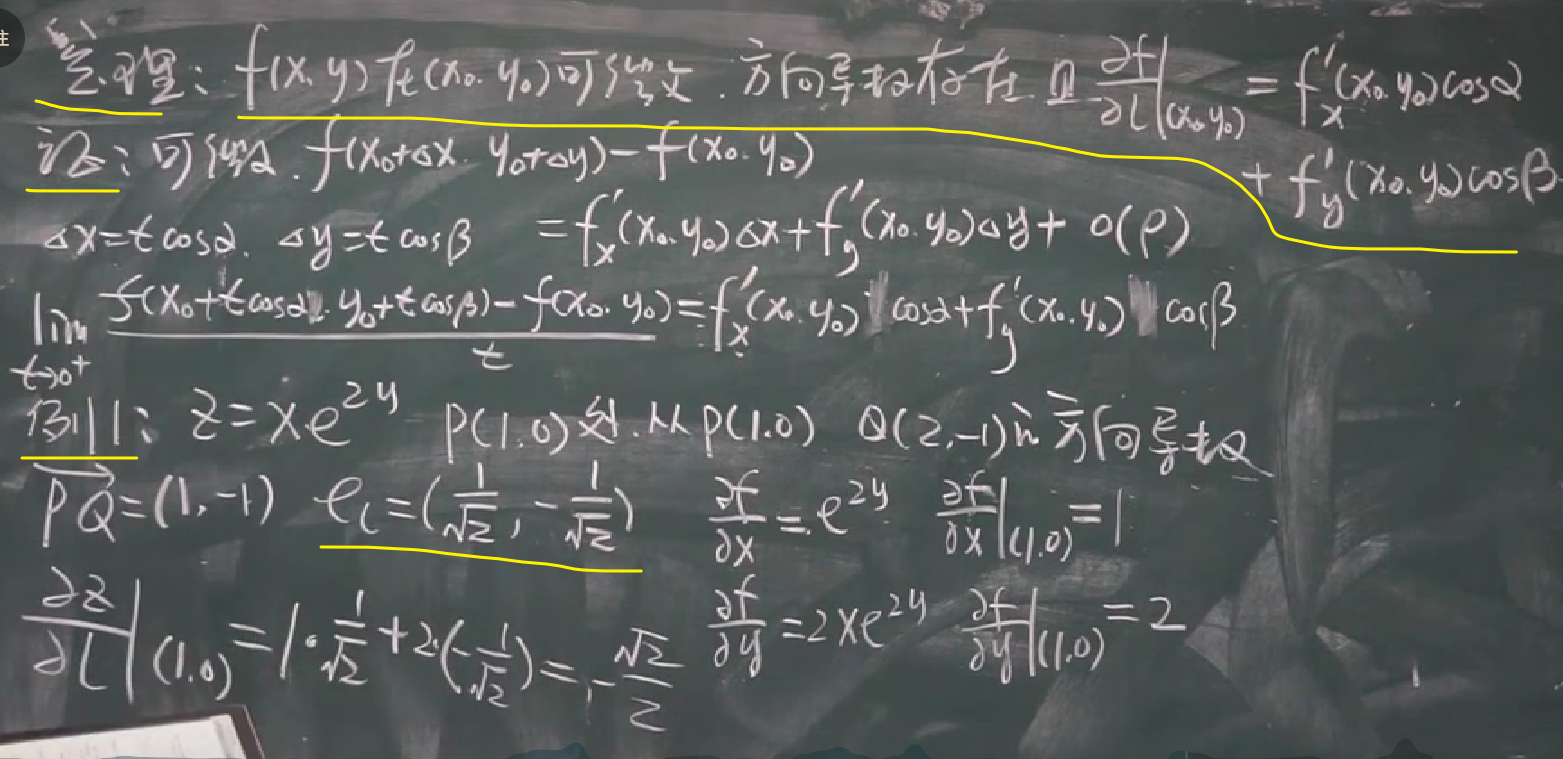 定理: f(x,y)在(x₀,y₀)可微, 方向导数存在且 ∂f/∂l|(x₀,y₀) = f'ₓ(x₀,y₀)cosα
+ f'ᵧ(x₀,y₀)cosβ
证: 可微. f(x₀+Δx, y₀+Δy)-f(x₀,y₀)
Δx=tcosα. Δy=tcosβ =f'ₓ(x₀,y₀)Δx+f'ᵧ(x₀,y₀)Δy+o(ρ)
lim t→0⁺ (f(x₀+tcosα, y₀+tcosβ)-f(x₀,y₀))/t=f'ₓ(x₀,y₀)cosα+f'ᵧ(x₀,y₀)cosβ
例1: z=xe^{2y} P(1,0)处.从P(1,0) Q(2,-1)的方向导数
PQ→=(1,-1) e_l=(1/√2, -1/√2) ∂f/∂x=e^{2y} ∂f/∂x|(1,0)=1
∂z/∂l|(1,0)=1·1/√2+2·(-1/√2)=-√2/2 ∂f/∂y=2xe^{2y} ∂f/∂y|(1,0)=2